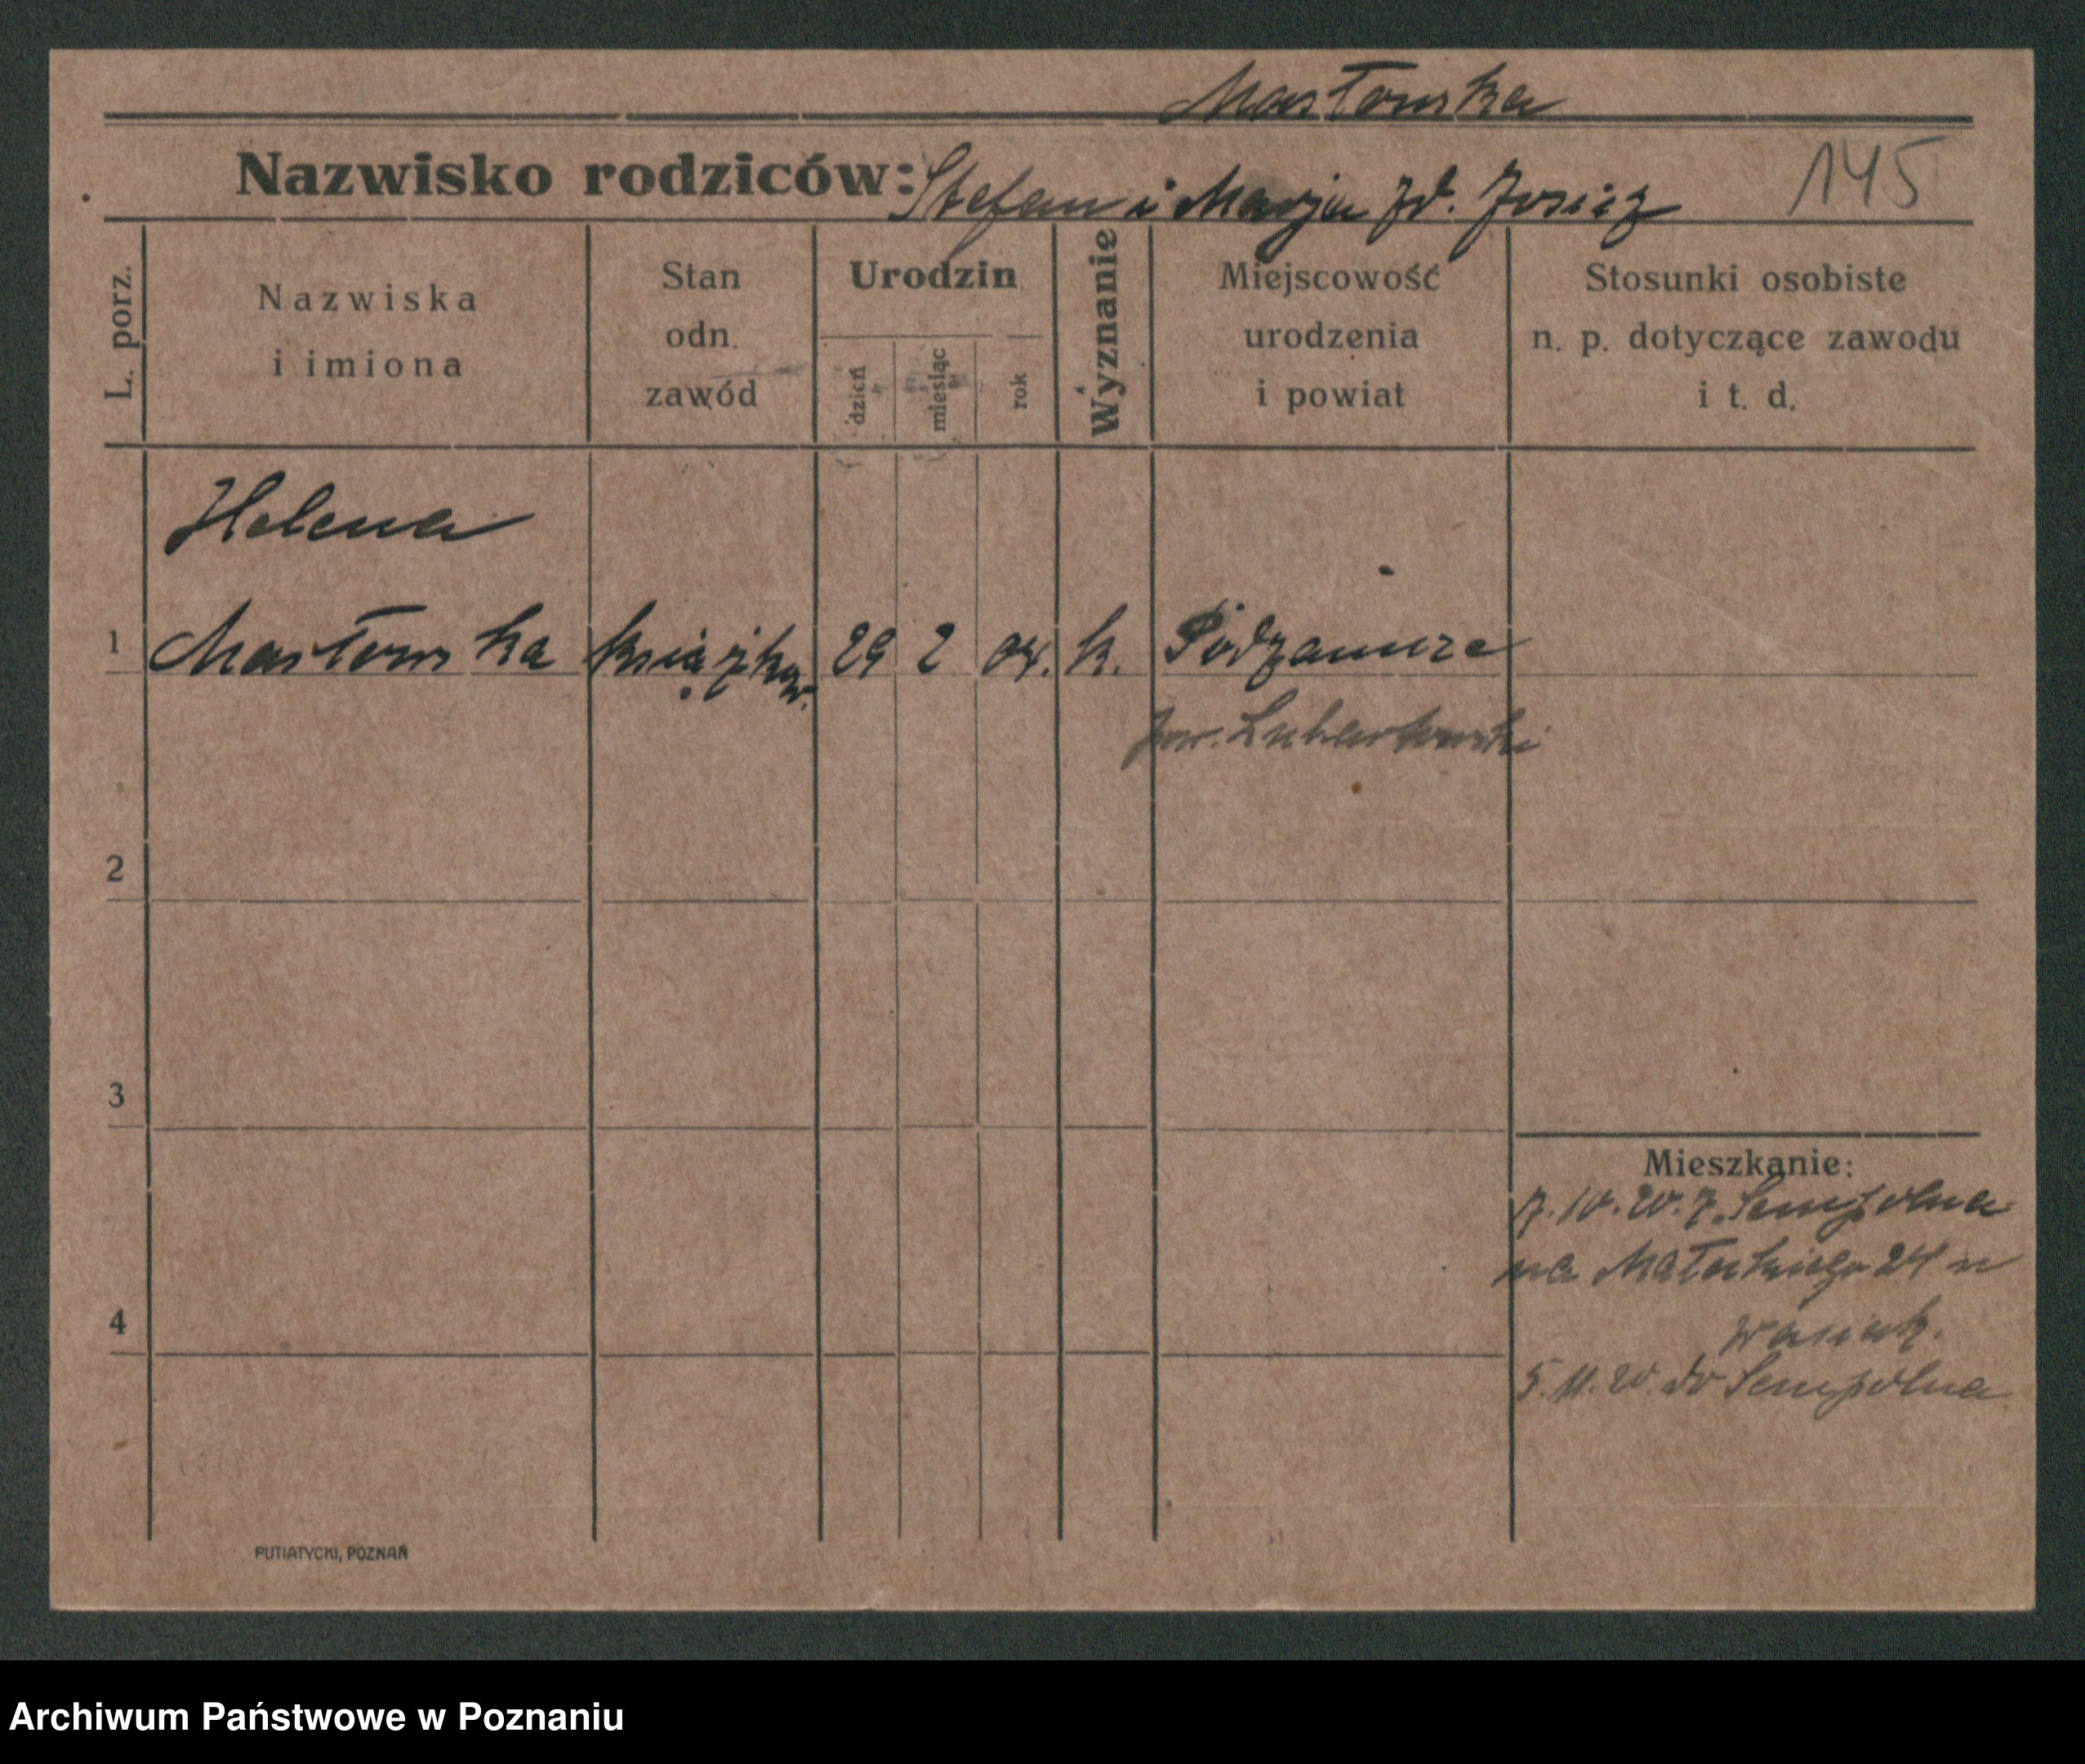 Masłowska
Nazwisko rodziców: Stefan i Marja zd. Josicz
145
L. porz.
Nazwiska i imiona
Stan odn. zawód
Urodzin
dzień miesiąc rok
Wyznanie
Miejscowość urodzenia i powiat
Stosunki osobiste n. p. dotyczące zawodu i t. d.
Helena
1 Masłowska książkow. 29 2 04. k. Podzamcze
pow. Lubartowski
2
3
Mieszkanie:
7.10.20. z Sempolna
na Małeckiego 24 u
4
5.11.20. do Sempolna
PUTIATYCKI, POZNAŃ
Archiwum Państwowe w Poznaniu